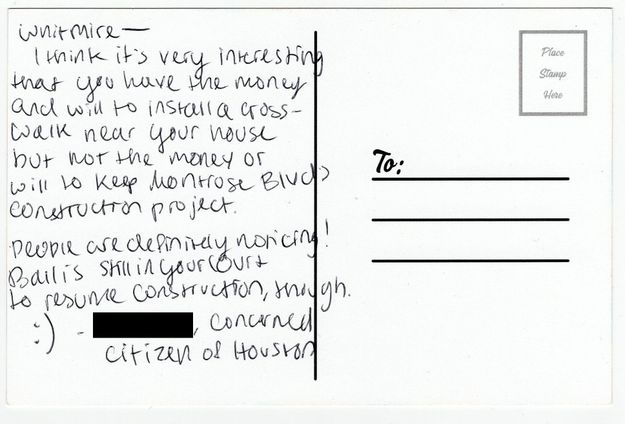 Whitmire—
I think it's very interesting
that you have the money
and will to install a cross-
walk near your house
but not the money or
will to keep Montrose Blvds
construction project.
People are definitely noticing!
Ball is still in your court
to resume construction, though.
:) - , concerned
citizen of Houston
Place
Stamp
Here
To: